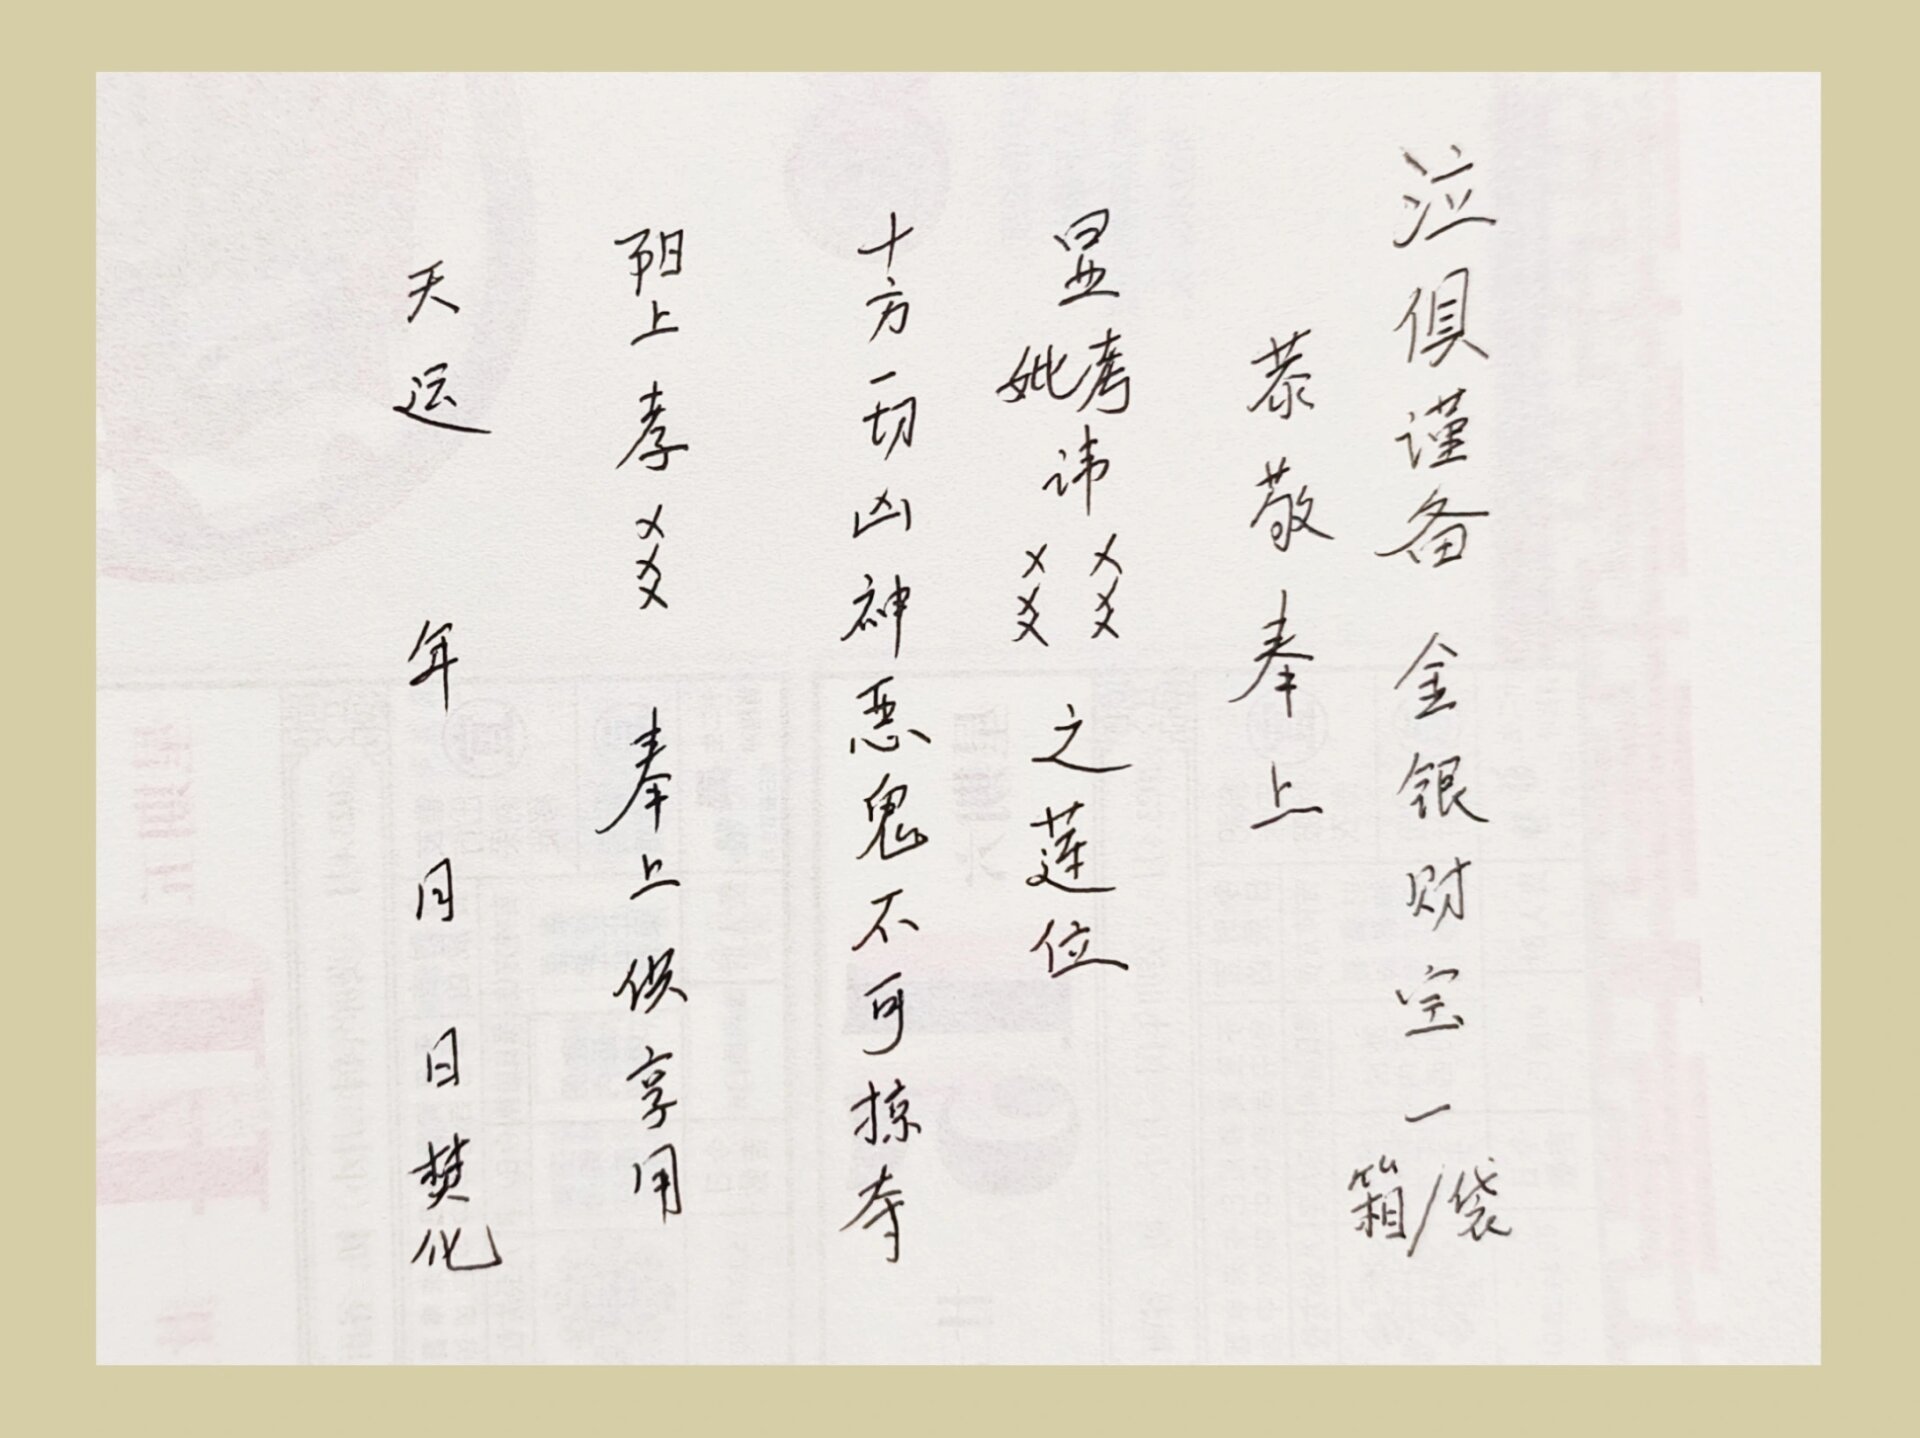 泣俱谨备 金银财宝一箱/袋
恭敬奉上
显考妣讳 ××× ××× 之莲位
十方一切凶神恶鬼不可掠夺
阳上孝××× 奉上供享用
天运 年 月 日焚化